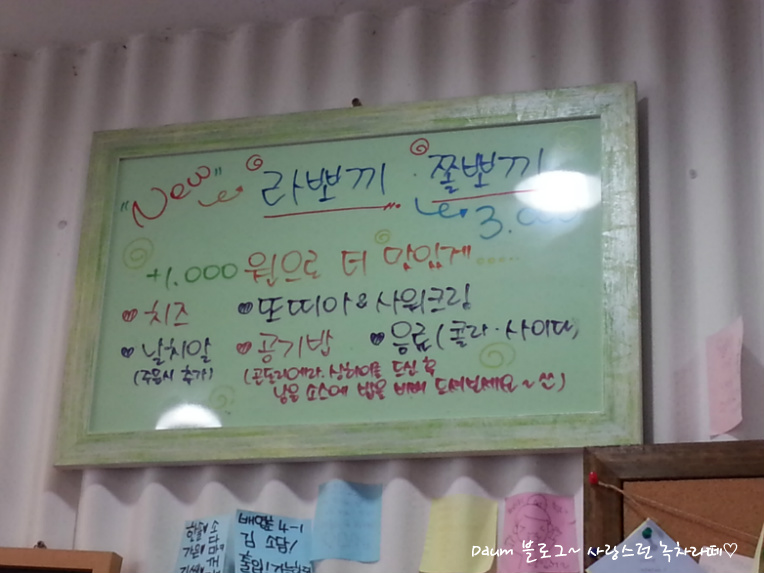 "New" 라뽀끼 · 쫄뽀끼
3.000
+1.000원으로 더 맛있게.....
치즈 또띠아&사워크림
날치알 공기밥 음료(콜라·사이다)
(주문시 추가) (곤돌리에라·상하이를 드신 후
남은 소스에 밥을 비벼 드셔보세요~쓰)
배연분 4-1
김 소담/
Daum 블로그~ 사랑스런 녹차라떼♡